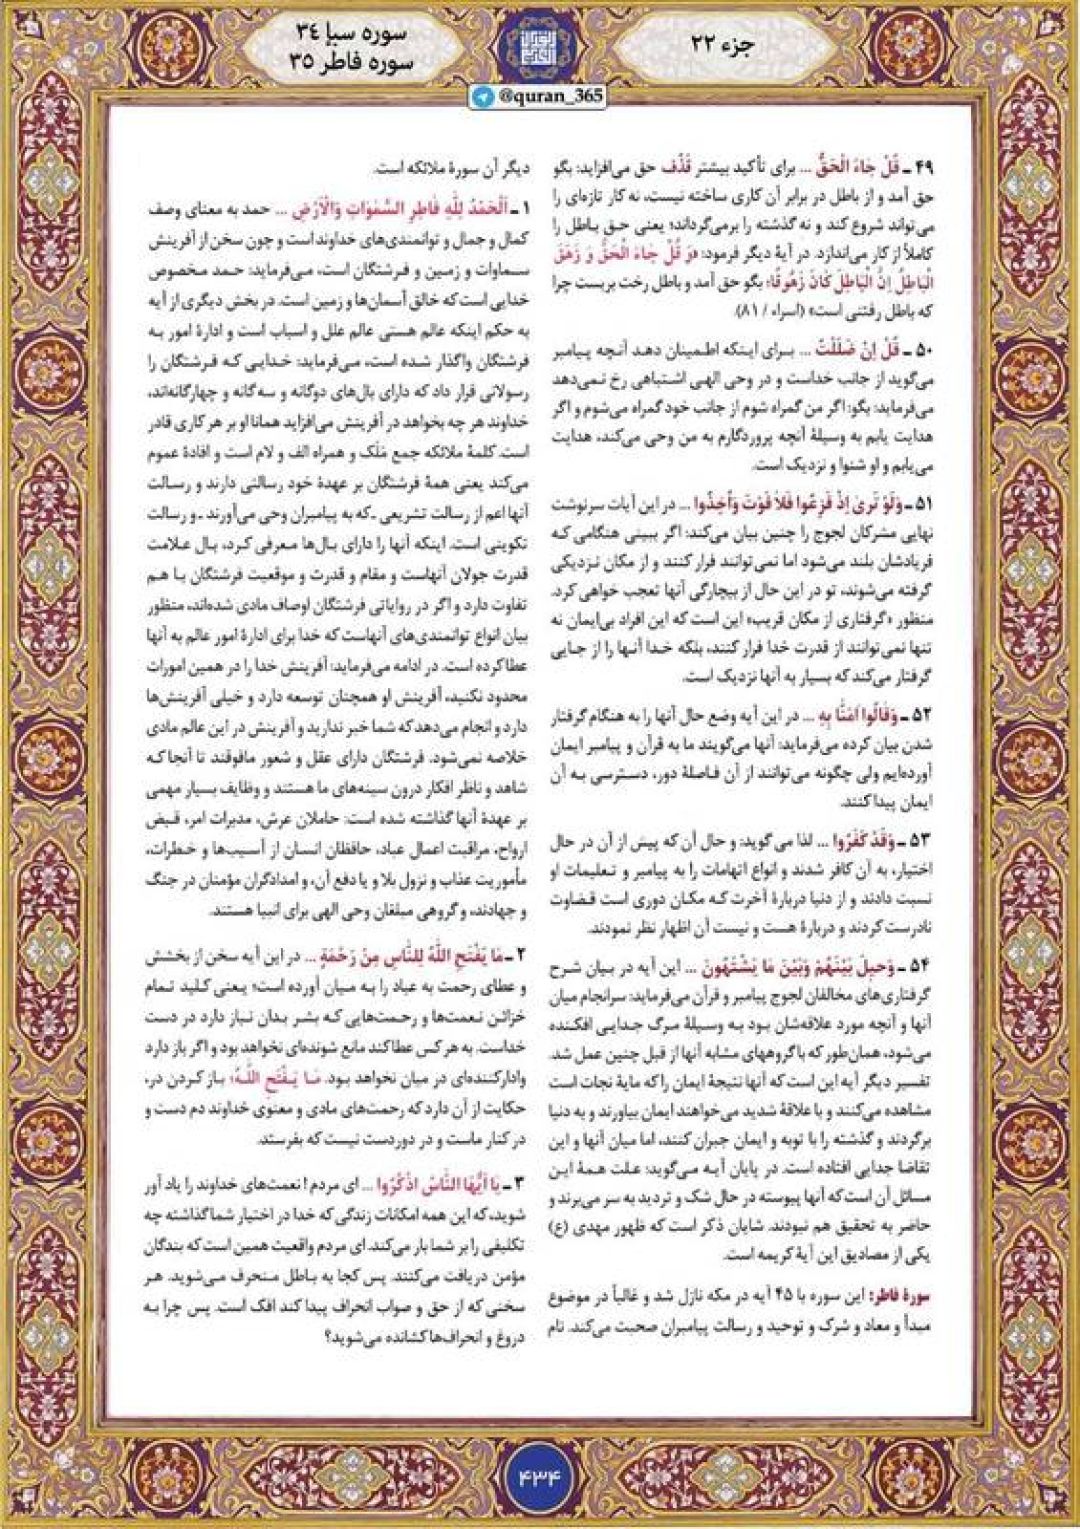 جزء ۲۲
سوره سبإ ۳۴
سوره فاطر ۳۵
@quran_365
۴۹ ـ قُلْ جَاءَ الْحَقُّ ... برای تأکید بیشتر قُذْف حق می‌افزاید: بگو
حق آمد و از باطل در برابر آن کاری ساخته نیست، نه کار تازه‌ای را
می‌تواند شروع کند و نه گذشته را برمی‌گرداند؛ یعنی حق باطل را
کاملاً از کار می‌اندازد. در آیهٔ دیگر فرمود: «وَ قُلْ جَاءَ الْحَقُّ وَ زَهَقَ
الْبَاطِلُ اِنَّ الْبَاطِلَ كَانَ زَهُوقًا؛ بگو حق آمد و باطل رخت بربست چرا
که باطل رفتنی است» (اسراء / ۸۱).
۵۰ ـ قُلْ اِنْ ضَلَلْتُ ... برای اینکه اطمینان دهد آنچه پیامبر
می‌گوید از جانب خداست و در وحی الهی اشتباهی رخ نمی‌دهد
می‌فرماید: بگو: اگر من گمراه شوم از جانب خود گمراه می‌شوم و اگر
هدایت یابم به وسیلهٔ آنچه پروردگارم به من وحی می‌کند، هدایت
می‌یابم و او شنوا و نزدیک است.
۵۱ ـ وَلَوْ تَرىٰ اِذْ فَزِعُوا فَلاٰ فَوْتَ وَأُخِذُوا ... در این آیات سرنوشت
نهایی مشرکان لجوج را چنین بیان می‌کند: اگر ببینی هنگامی که
فریادشان بلند می‌شود اما نمی‌توانند فرار کنند و از مکان نزدیکی
گرفته می‌شوند، تو در این حال از بیچارگی آنها تعجب خواهی کرد.
منظور «گرفتاری از مکان قریب» این است که این افراد بی‌ایمان نه
تنها نمی‌توانند از قدرت خدا فرار کنند، بلکه خدا آنها را از جایی
گرفتار می‌کند که بسیار به آنها نزدیک است.
۵۲ ـ وَقَالُوا اٰمَنَّا بِهِ ... در این آیه وضع حال آنها را به هنگام گرفتار
شدن بیان کرده می‌فرماید: آنها می‌گویند ما به قرآن و پیامبر ایمان
آورده‌ایم ولی چگونه می‌توانند از آن فاصلهٔ دور، دسترسی به آن
ایمان پیدا کنند.
۵۳ ـ وَقَدْ كَفَرُوا ... لذا می‌گوید: و حال آن که پیش از آن در حال
اختیار، به آن کافر شدند و انواع اتهامات را به پیامبر و تعلیمات او
نسبت دادند و از دنیا دربارهٔ آخرت که مکان دوری است قضاوت
نادرست کردند و دربارهٔ هست و نیست آن اظهار نظر نمودند.
۵۴ ـ وَحِيلَ بَيْنَهُمْ وَبَيْنَ مَا يَشْتَهُونَ ... این آیه در بیان شرح
گرفتاری‌های مخالفان لجوج پیامبر و قرآن می‌فرماید: سرانجام میان
آنها و آنچه مورد علاقه‌شان بود به وسیلهٔ مرگ جدایی افکنده
می‌شود، همان‌طور که با گروههای مشابه آنها از قبل چنین عمل شد.
تفسیر دیگر آیه این است که آنها نتیجهٔ ایمان را که مایهٔ نجات است
مشاهده می‌کنند و با علاقهٔ شدید می‌خواهند ایمان بیاورند و به دنیا
برگردند و گذشته را با توبه و ایمان جبران کنند، اما میان آنها و این
تقاضا جدایی افتاده است. در پایان آیه می‌گوید: علت همهٔ این
مسائل آن است که آنها پیوسته در حال شک و تردید به سر می‌برند و
حاضر به تحقیق هم نبودند. شایان ذکر است که ظهور مهدی (ع)
یکی از مصادیق این آیهٔ کریمه است.
سورهٔ فاطر: این سوره با ۴۵ آیه در مکه نازل شد و غالباً در موضوع
مبدأ و معاد و شرک و توحید و رسالت پیامبران صحبت می‌کند. نام
دیگر آن سورهٔ ملائکه است.
۱ ـ اَلْحَمْدُ لِلّٰهِ فَاطِرِ السَّمٰوَاتِ وَالْاَرْضِ ... حمد به معنای وصف
کمال و جمال و توانمندی‌های خداوند است و چون سخن از آفرینش
سماوات و زمین و فرشتگان است، می‌فرماید: حمد مخصوص
خدایی است که خالق آسمان‌ها و زمین است. در بخش دیگری از آیه
به حکم اینکه عالم هستی عالم علل و اسباب است و ادارهٔ امور به
فرشتگان واگذار شده است، می‌فرماید: خدایی که فرشتگان را
رسولانی قرار داد که دارای بال‌های دوگانه و سه‌گانه و چهارگانه‌اند،
خداوند هر چه بخواهد در آفرینش می‌افزاید همانا او بر هر کاری قادر
است. کلمهٔ ملائکه جمع مَلَک و همراه الف و لام است و افادهٔ عموم
می‌کند یعنی همهٔ فرشتگان بر عهدهٔ خود رسالتی دارند و رسالت
آنها اعم از رسالت تشریعی ـ که به پیامبران وحی می‌آورند ـ و رسالت
تکوینی است. اینکه آنها را دارای بال‌ها معرفی کرد، بال علامت
قدرت جولان آنهاست و مقام و قدرت و موقعیت فرشتگان با هم
تفاوت دارد و اگر در روایاتی فرشتگان اوصاف مادی شده‌اند، منظور
بیان انواع توانمندی‌های آنهاست که خدا برای ادارهٔ امور عالم به آنها
عطا کرده است. در ادامه می‌فرماید: آفرینش خدا را در همین امورات
محدود نکنید، آفرینش او همچنان توسعه دارد و خیلی آفرینش‌ها
دارد و انجام می‌دهد که شما خبر ندارید و آفرینش در این عالم مادی
خلاصه نمی‌شود. فرشتگان دارای عقل و شعور مافوقند تا آنجا که
شاهد و ناظر افکار درون سینه‌های ما هستند و وظایف بسیار مهمی
بر عهدهٔ آنها گذاشته شده است: حاملان عرش، مدبرات امر، قبض
ارواح، مراقبت اعمال عباد، حافظان انسان از آسیب‌ها و خطرات،
مأموریت عذاب و نزول بلا و یا دفع آن، و امدادگران مؤمنان در جنگ
و جهادند، و گروهی مبلغان وحی الهی برای انبیا هستند.
۲ ـ مَا يَفْتَحِ اللّٰهُ لِلنَّاسِ مِنْ رَحْمَةٍ ... در این آیه سخن از بخشش
و عطای رحمت به عباد را به میان آورده است؛ یعنی کلید تمام
خزائن نعمت‌ها و رحمت‌هایی که بشر بدان نیاز دارد در دست
خداست. به هر کس عطا کند مانع شونده‌ای نخواهد بود و اگر باز دارد
وادارکننده‌ای در میان نخواهد بود. مَا يَفْتَحِ اللّٰهُ؛ باز کردن در،
حکایت از آن دارد که رحمت‌های مادی و معنوی خداوند دم دست و
در کنار ماست و در دوردست نیست که بفرستد.
۳ ـ يَا اَيُّهَا النَّاسُ اذْكُرُوا ... ای مردم! نعمت‌های خداوند را یاد آور
شوید، که این همه امکانات زندگی که خدا در اختیار شما گذاشته چه
تکلیفی را بر شما بار می‌کند. ای مردم واقعیت همین است که بندگان
مؤمن دریافت می‌کنند. پس کجا به باطل منحرف می‌شوید. هر
سخنی که از حق و صواب انحراف پیدا کند افک است. پس چرا به
دروغ و انحراف‌ها کشانده می‌شوید؟
۴۳۴